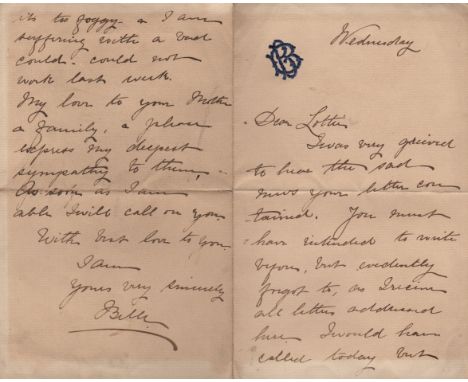 Wednesday
Dear Lottie
I was very grieved
to hear the sad
news your letter con
tained. You must
have intended to write
before, but evidently
forgot to, as I receive
all letters addressed
here I would have
called today but
its to foggy & I am
suffering with a bad
could. could not
work last week.
My love to your Mother
& family, & please
express my deepest
sympathy to them,
As soon as I am
able I will call on you
With best love to you.
I am
Yours very sincerely